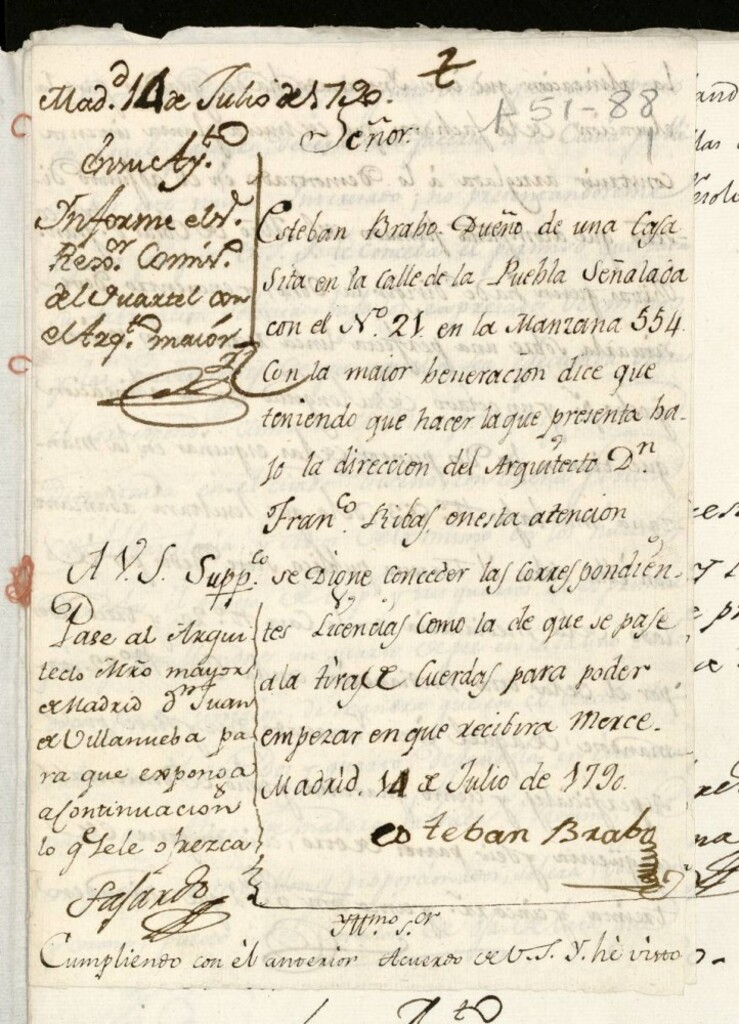 Mad.d 14 de Julio de 1790.
1-51-88
1
Señor.
En su Ay.to
Informe el S.r
Rex.or Comis.o
del Quartel con
el Arq.to maior
Esteban Brabo Dueño de una Casa
sita en la Calle de la Puebla Señalada
con el N.o 21 en la Manzana 554.
Con la maior beneracion dice que
teniendo que hacer la que presenta ba-
jo la direccion del Arquitecto D.n
Fran.co Ribas, en esta atencion
A V.S. Supp.co se Digne conceder las correspondien-
tes Licencias como la de que se pase
a la tira de Cuerdas para poder
empezar en que recibira Merce.
Madrid. 14 de Julio de 1790.
esteban Brabo
Pase al Arqui
tecto Mro mayor
de Madrid D.n Juan
de Villanueba pa
ra que exponga
a Continuacion
lo q.e se le ofrezca
Fajardo
Yttmo S.or
Cumpliendo con el anterior Acuerdo de V.S.Y. he visto